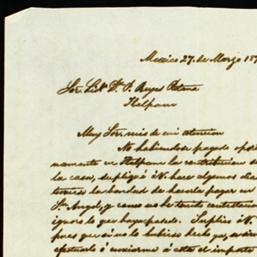 Mexico 27. de Marzo 187
Sor. Lic. D. I. Reyes Retana
Tlalpam
Muy Sor. mio de mi atencion
No habiendose pagado opor
namente en Tlalpam la contribucion
la casa, suplico á V. hace algunos dias
la bondad de hacerla pagar en
Sn. Angel, y como no he tenido contestacion
ignoro lo que haya pasado. Suplico á V.
pues que si no la hubiese hecho
efectuarlo ó enviarme á esta el importe